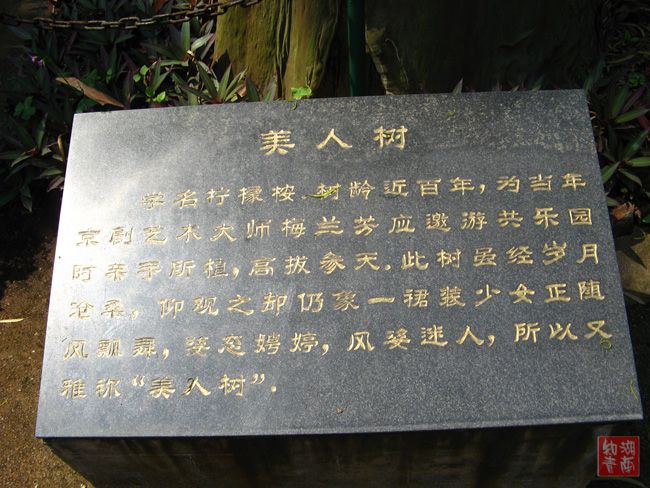 美人树
学名柠檬桉.树龄近百年，为当年
京剧艺术大师梅兰芳应邀游共乐园
时亲手所植，高拔参天.此树虽经岁月
沧桑，仰观之却仍象一裙装少女正随
风飘舞，姿态娉婷，风姿迷人，所以又
雅称“美人树”.
湖南
知青